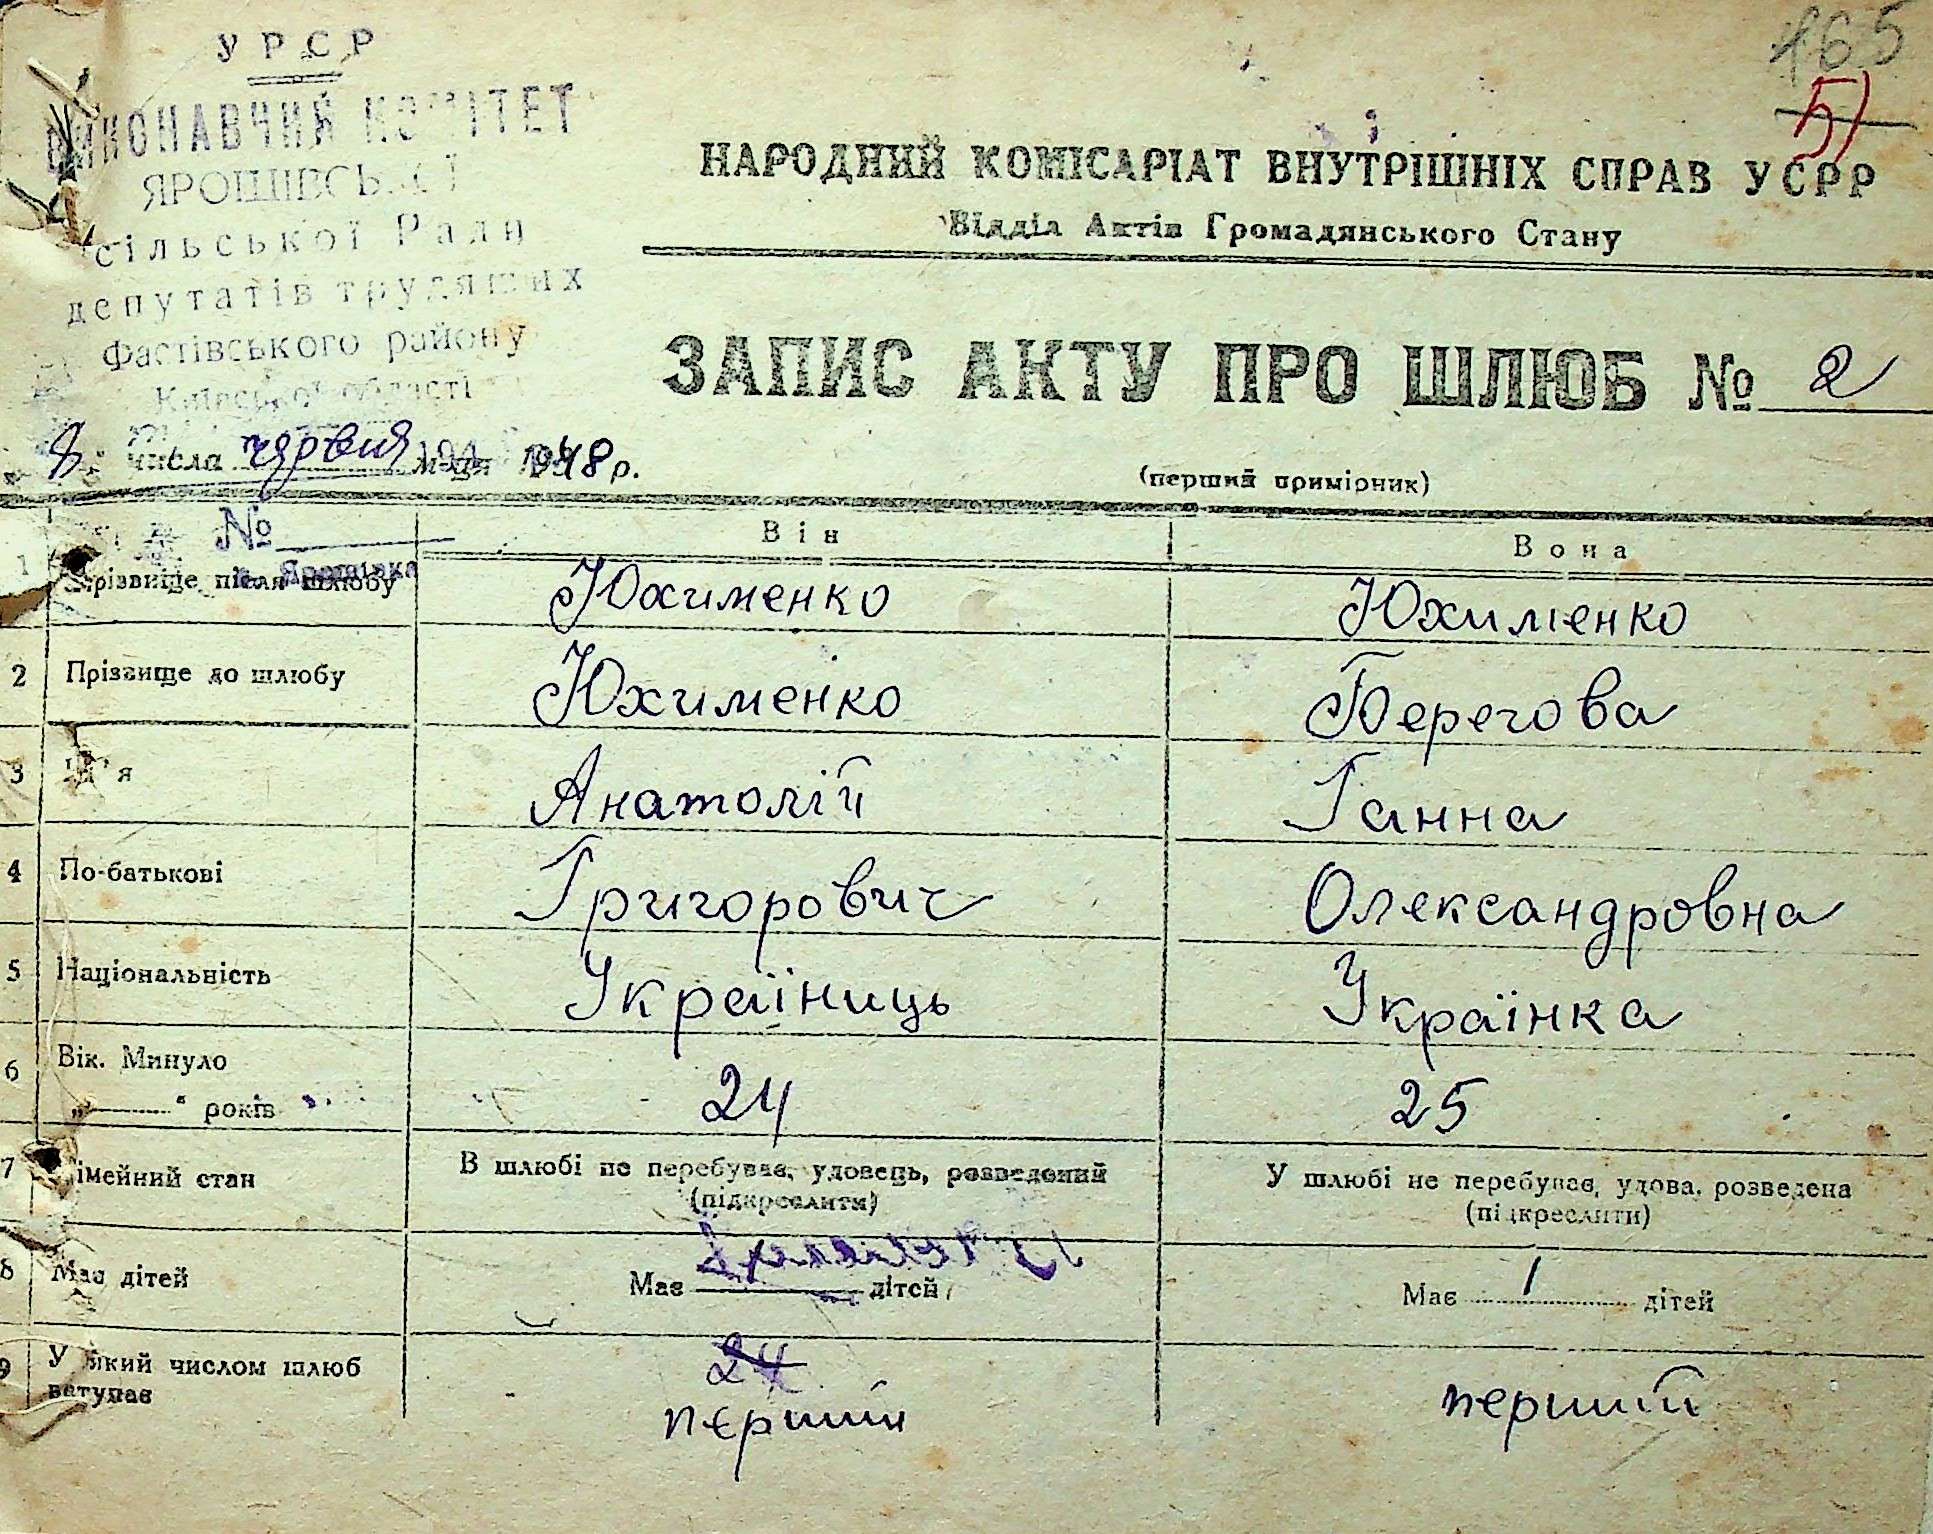 УРСР
ВИКОНАВЧИЙ КОМІТЕТ
ЯРОШІВСЬКОЇ
сільської Ради
депутатів трудящих
Фастівського району
Київської області
465
51
НАРОДНИЙ КОМІСАРІАТ ВНУТРІШНІХ СПРАВ УСРР
Відділ Актів Громадянського Стану
ЗАПИС АКТУ ПРО ШЛЮБ № 2
8 числа червня м-ця 1948 р.
(перший примірник)
№
с. Ярошівка
Він Вона
1 Прізвище після шлюбу Юхименко Юхименко
2 Прізвище до шлюбу Юхименко Берегова
3 Ім'я Анатолій Ганна
4 По-батькові Григорович Олександровна
5 Національність Україниць Українка
6 Вік. Минуло
„ “ років 24 25
7 Сімейний стан В шлюбі не перебуває, удовець, розведений У шлюбі не перебуває, удова, розведена
(підкреслити) (підкреслити)
8 Має дітей Має дітей Має 1 дітей
9 У який числом шлюб
вступає 24
перший перший